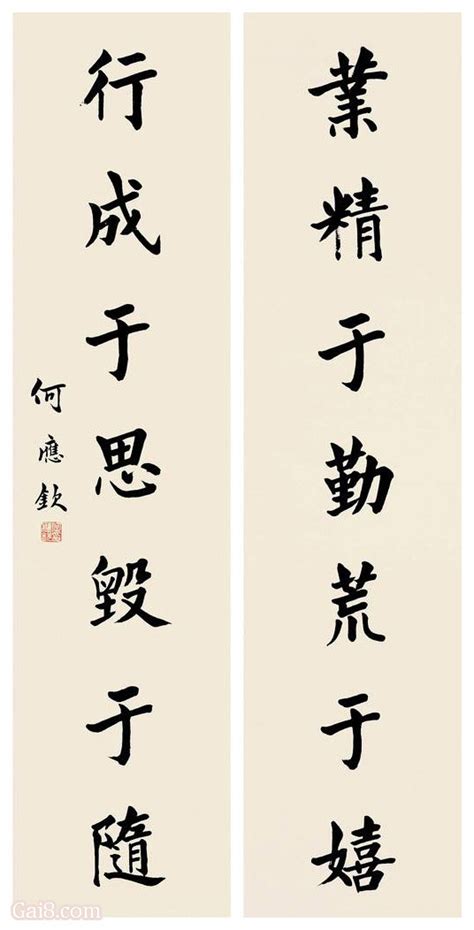 業精于勤荒于嬉
行成于思毀于隨
何應欽
Gai8.com